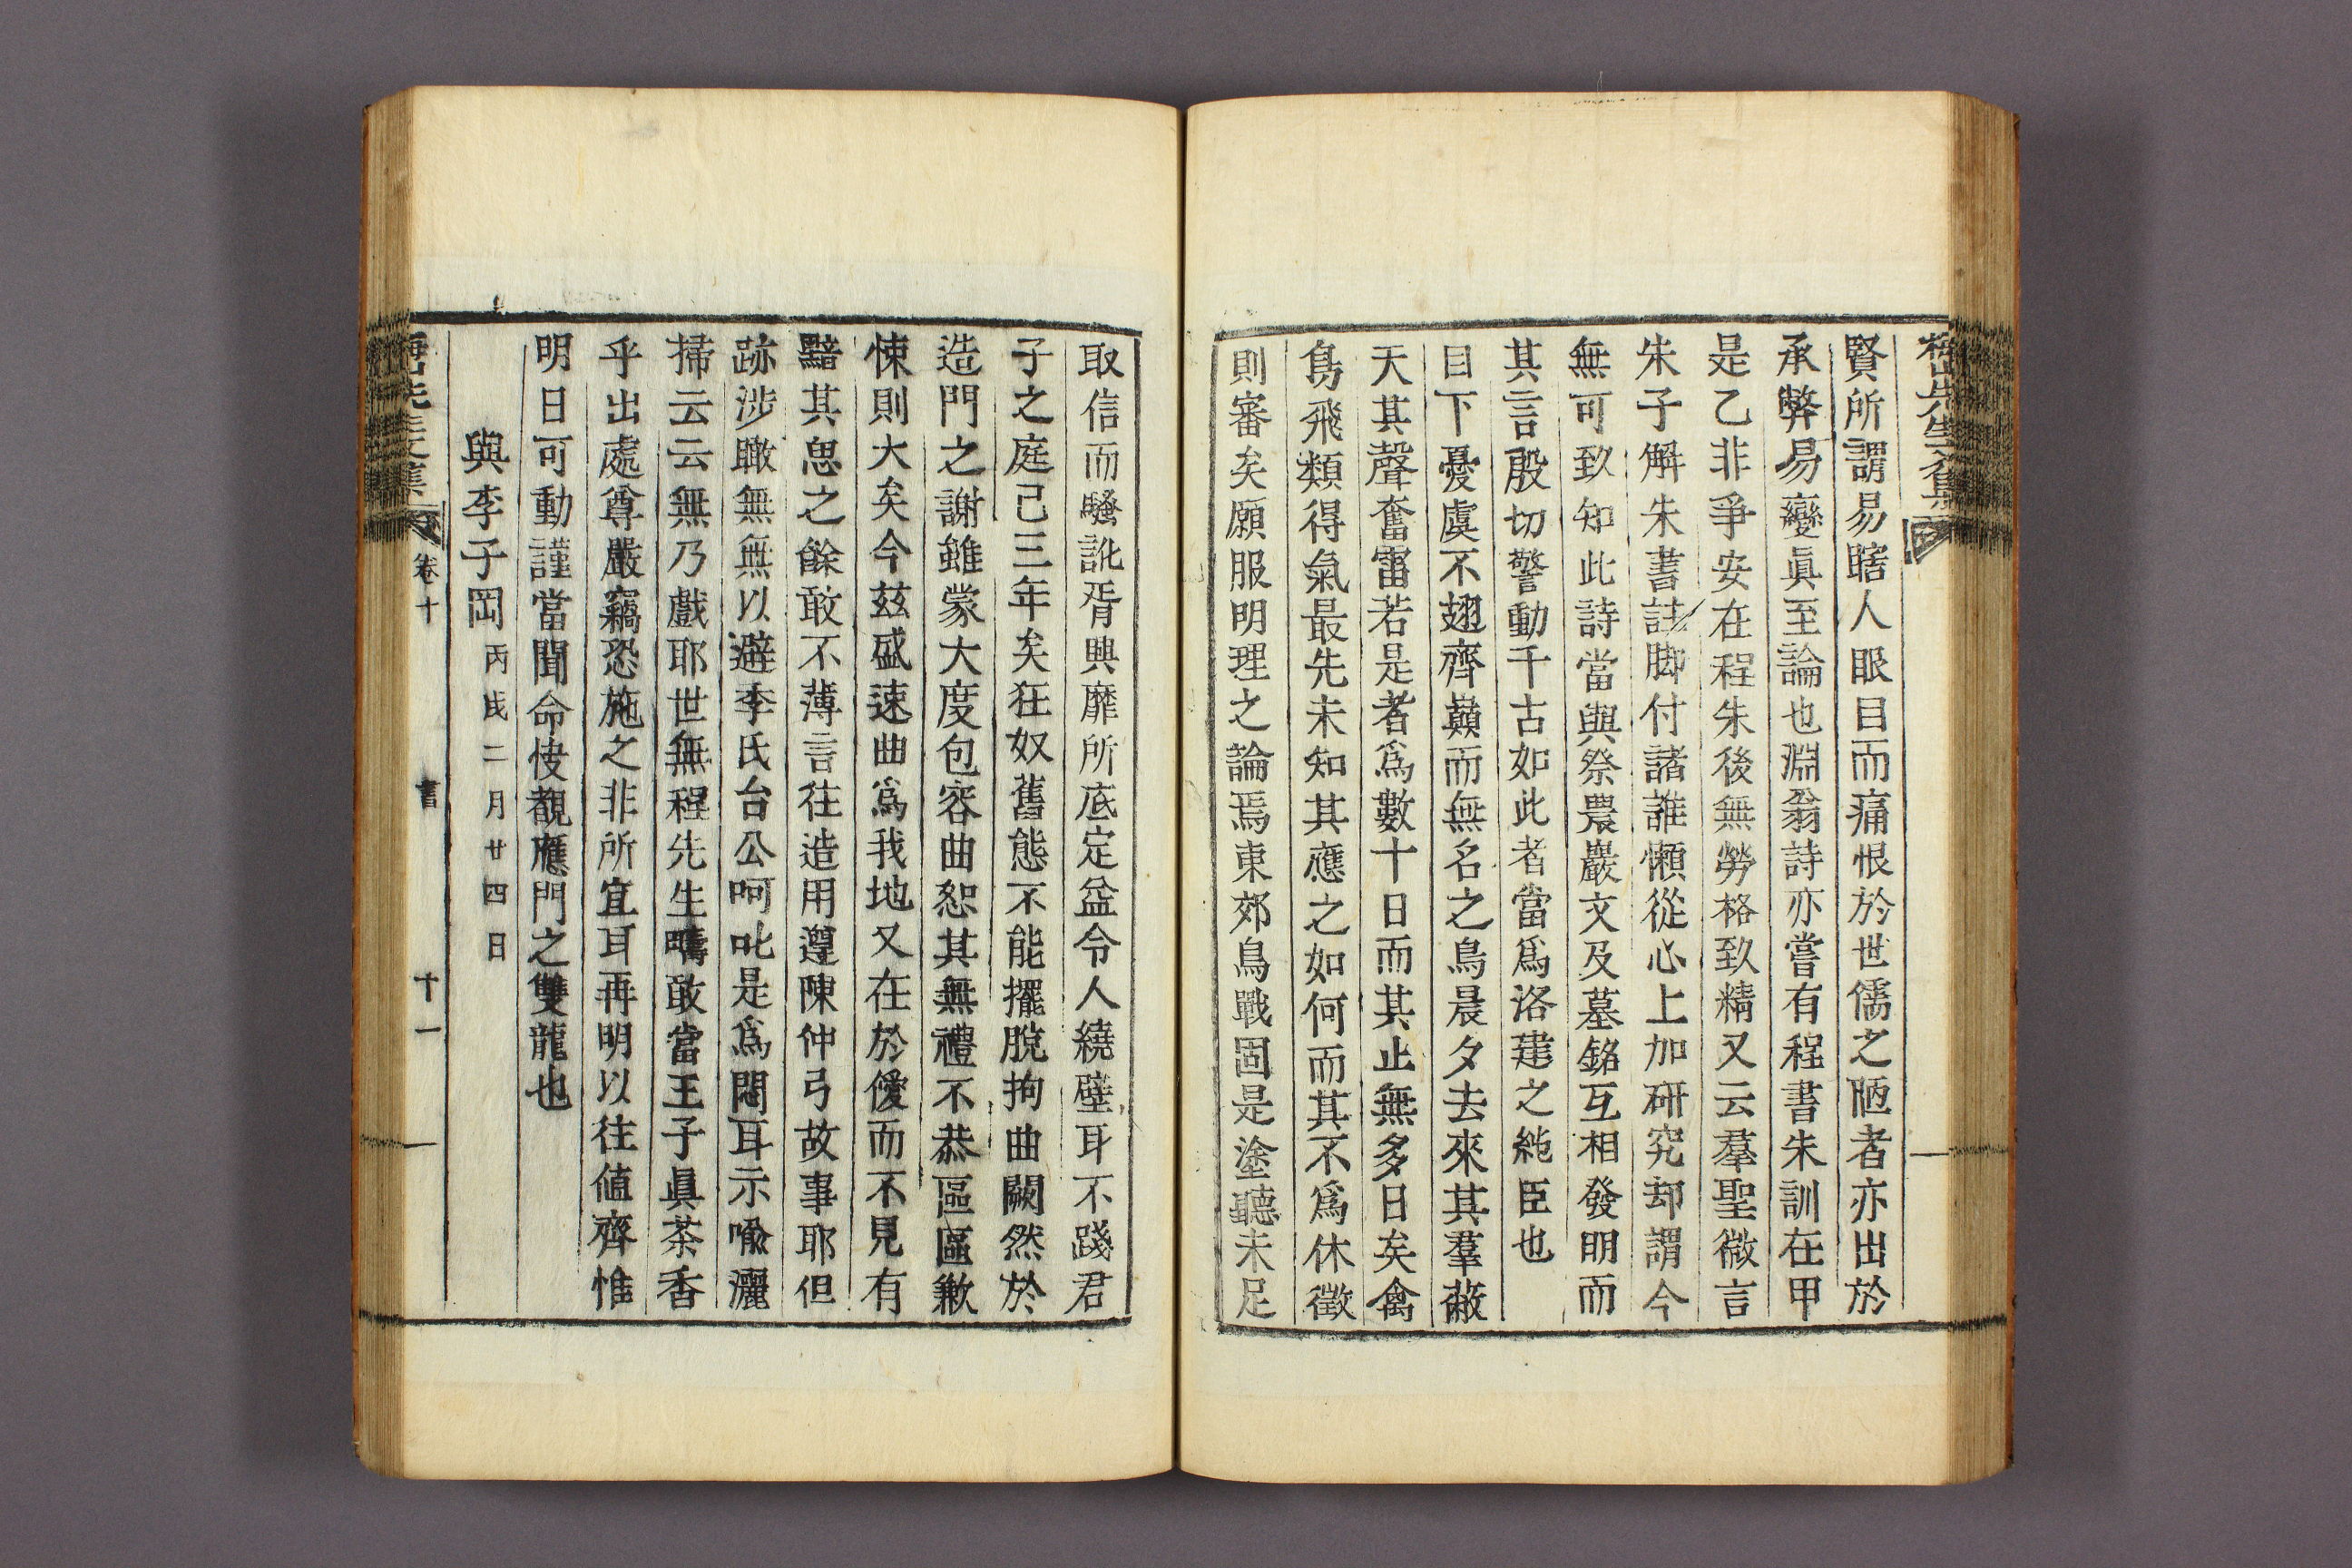 賢所謂易瞎人眼目而痛恨於世儒之陋者亦出於
承弊易變眞至論也淵翁詩亦嘗有程書朱訓在甲
是乙非爭安在程朱後無勞格致精又云羣聖微言
朱子解朱書註脚付諸誰懶從心上加硏究却謂今
無可致知此詩當與祭農巖文及墓銘互相發明而
其言殷切警動千古如此者當爲洛建之純臣也
目下憂虞不翅齊巔而無名之鳥晨夕去來其羣蔽
天其聲奮雷若是者爲數十日而其止無多日矣禽
鳥飛類得氣最先未知其應之如何而其不爲休徵
則審矣願服明理之論焉東郊鳥戰固是塗聽未足
取信而騷訛胥興靡所底定益令人繞壁耳不踐君
子之庭已三年矣狂奴舊態不能擺脫拘曲闕然於
造門之謝雖蒙大度包容曲恕其無禮不恭區區歉
悚則大矣今玆盛速曲爲我地又在於僾而不見有
黯其思之餘敢不薄言往造用遵陳仲弓故事耶但
跡涉瞰無無以避季氏台公呵叱是爲悶耳示喩灑
掃云云無乃戲耶世無程先生疇敢當王子眞茶香
乎出處尊嚴竊恐施之非所宜耳再明以往値齊惟
明日可動謹當聞命使覩應門之雙龍也
與李子岡 丙戌二月廿四日
卷十 書 十一